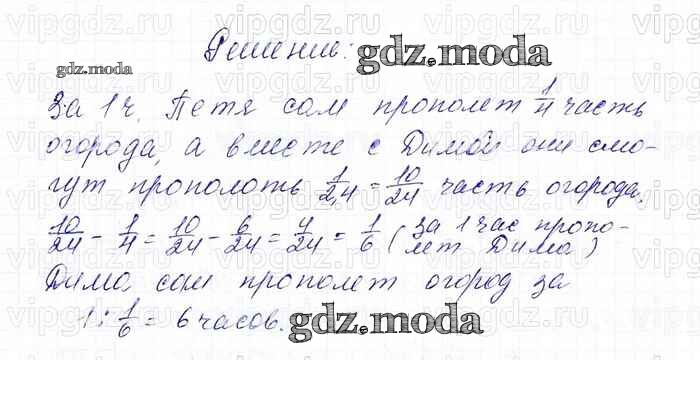 Решение:
gdz.moda
gdz.moda
За 1ч. Петя сам прополет 1/4 часть
огорода, а вместе с Димой они смо-
гут прополоть 1/2,4 = 10/24 часть огорода.
10/24 - 1/4 = 10/24 - 6/24 = 4/24 = 1/6 (за 1 час пропо-
лет Дима)
Дима сам прополет огород за
1 : 1/6 = 6 часов.
gdz.moda
vipgdz.ru